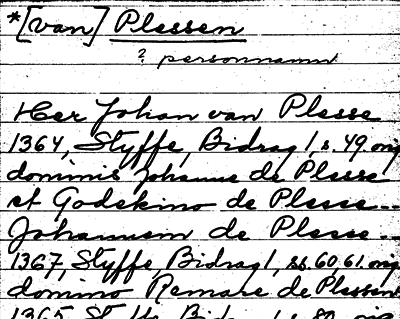 *[van] Plessen
? personnamn
Her Johan van Plesse
1364, Styffe, Bidrag 1, s. 49 orig
dominis Johanne de Plesse
et Godekino de Plesse...
Johannem de Plesse...
1367, Styffe, Bidrag 1, ss. 60, 61. orig
domino Remare de Plessen
1365 Styffe Bidrag 1 s. 80 orig